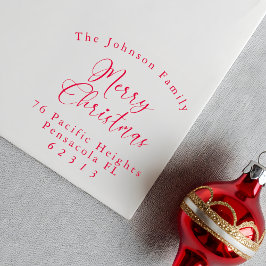 The Johnson Family
Merry
Christmas
76 Pacific Heights
Pensacola FL
62313